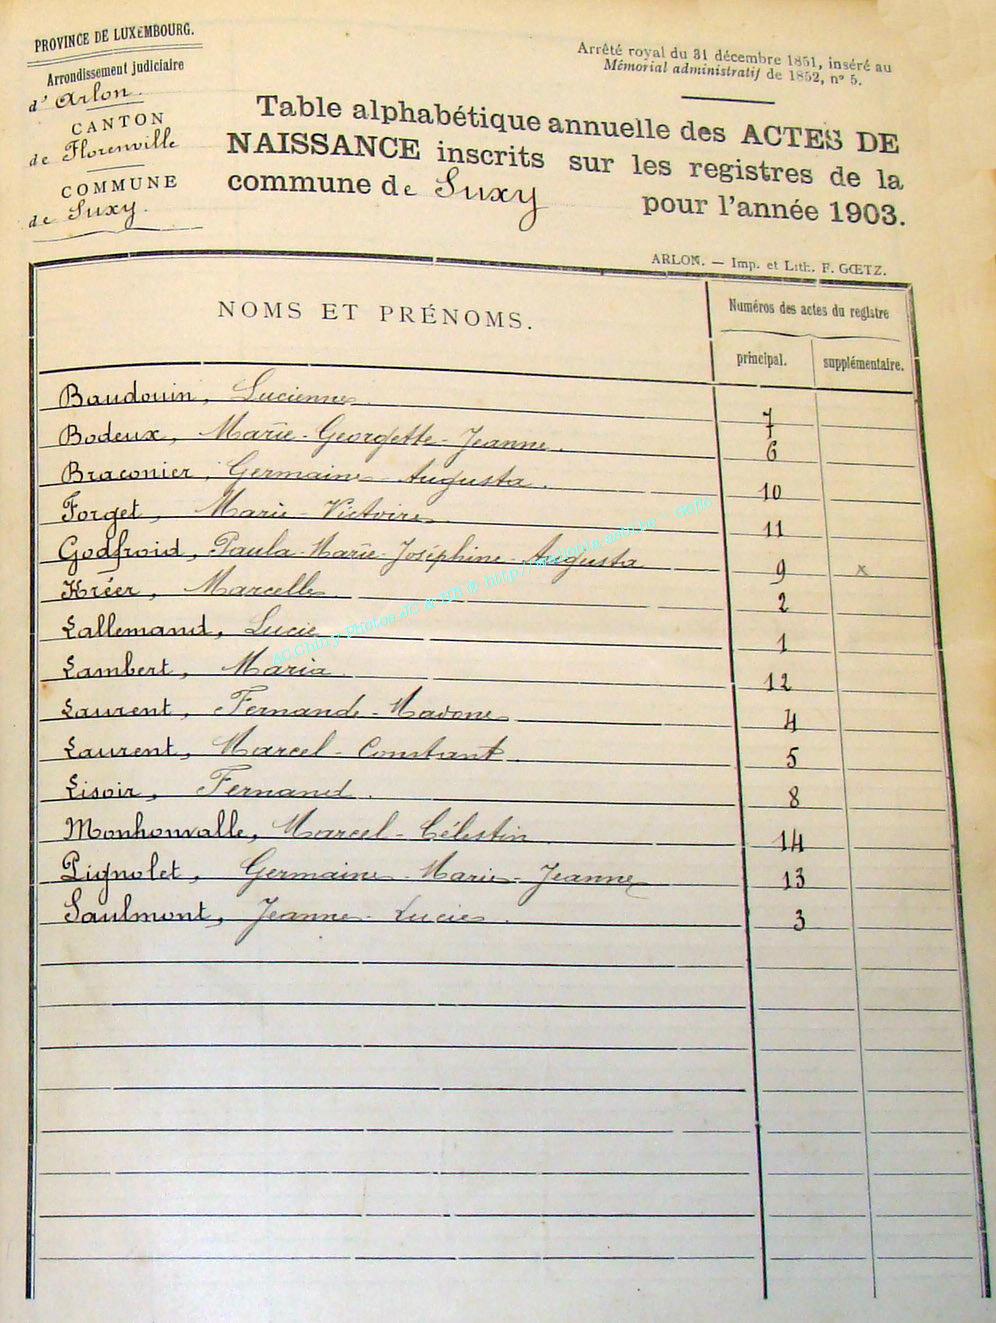 PROVINCE DE LUXEMBOURG.
Arrondissement judiciaire
d'Arlon.
CANTON
de Florenville
COMMUNE
de Suxy.
Arrêté royal du 31 décembre 1851, inséré au
Mémorial administratif de 1852, n° 5.
Table alphabétique annuelle des ACTES DE
NAISSANCE inscrits sur les registres de la
commune de Suxy pour l'année 1903.
ARLON. — Imp. et Lith. F. GŒTZ.
NOMS ET PRÉNOMS.
Numéros des actes du registre
principal. supplémentaire.
Baudouin, Lucienne. 7
Bodeux, Marie-Georgette-Jeanne. 6
Braconier, Germaine-Augusta. 10
Forget, Marie-Victoire. 11
Godfroid, Paula-Marie-Joséphine-Augusta 9 x
Kréer, Marcelle. 2
Lallemand, Lucie 1
Lambert, Maria. 12
Laurent, Fernande-Madone 4
Laurent, Marcel-Constant. 5
Lisoir, Fernand. 8
Monhonvalle, Marcel-Célestin. 14
Pignolet, Germaine-Marie-Jeanne 13
Saulmont, Jeanne-Lucie. 3